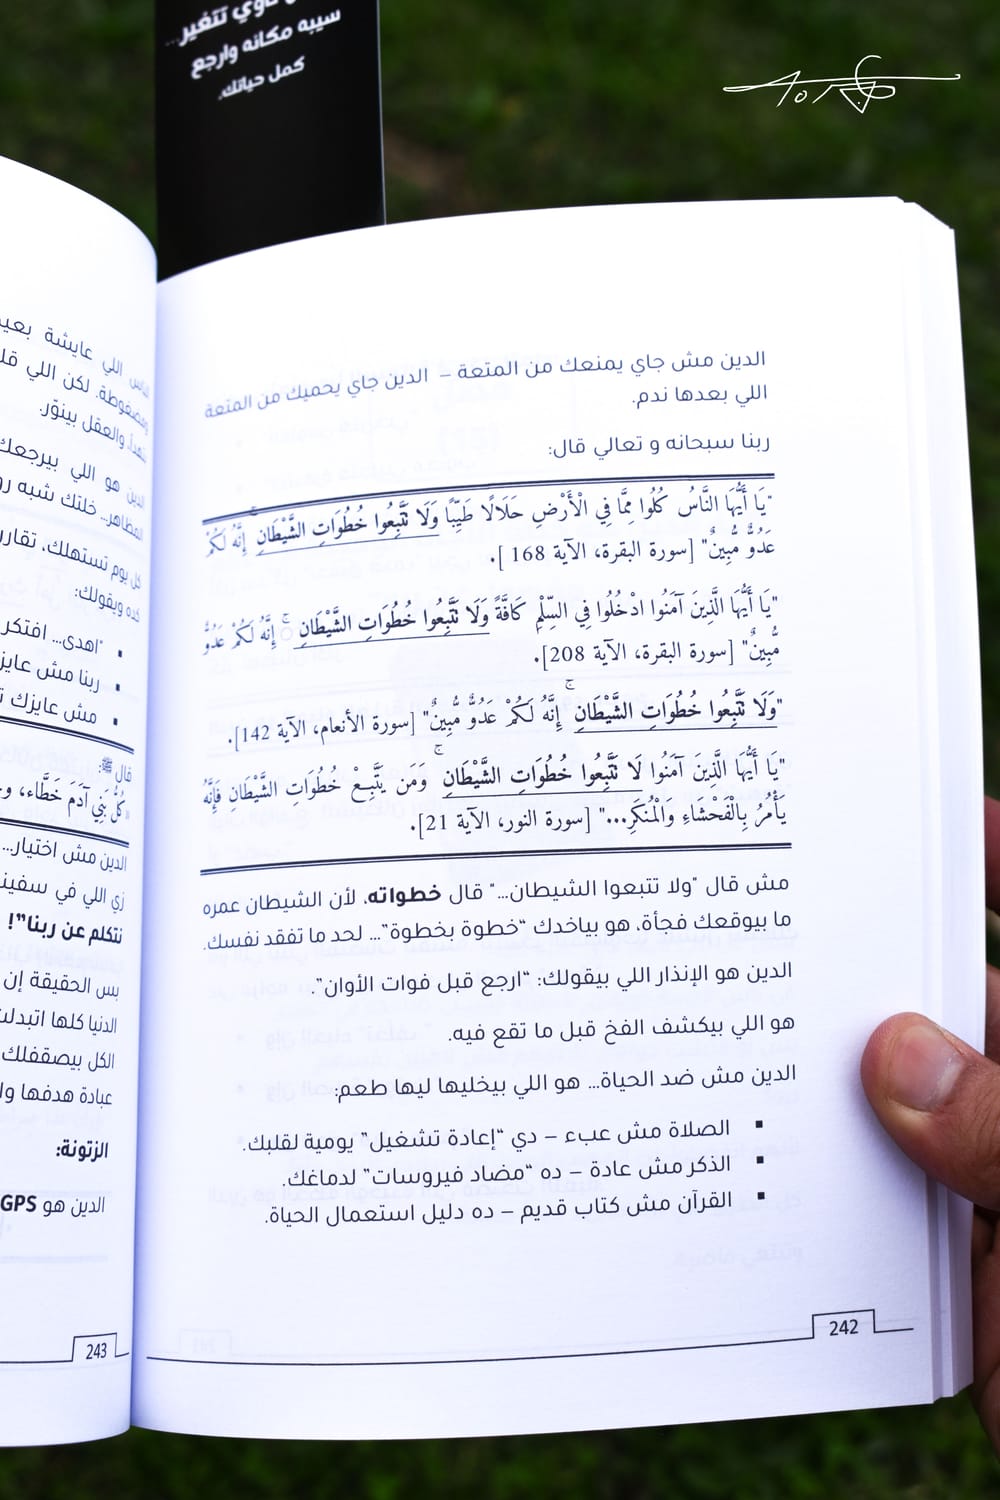 تتغير...
سيبه مكانه وارجع
كمل حياتك.
الدين مش جاي يمنعك من المتعة – الدين جاي يحميك من المتعة
اللي بعدها ندم.
ربنا سبحانه و تعالي قال:
"يَا أَيُّهَا النَّاسُ كُلُوا مِمَّا فِي الْأَرْضِ حَلَالًا طَيِّبًا وَلَا تَتَّبِعُوا خُطُوَاتِ الشَّيْطَانِ ۚ إِنَّهُ لَكُمْ
عَدُوٌّ مُّبِينٌ" [سورة البقرة، الآية 168 ].
"يَا أَيُّهَا الَّذِينَ آمَنُوا ادْخُلُوا فِي السِّلْمِ كَافَّةً وَلَا تَتَّبِعُوا خُطُوَاتِ الشَّيْطَانِ ۚ إِنَّهُ لَكُمْ عَدُوٌّ
مُّبِينٌ" [سورة البقرة، الآية 208].
"وَلَا تَتَّبِعُوا خُطُوَاتِ الشَّيْطَانِ ۚ إِنَّهُ لَكُمْ عَدُوٌّ مُّبِينٌ" [سورة الأنعام، الآية 142].
"يَا أَيُّهَا الَّذِينَ آمَنُوا لَا تَتَّبِعُوا خُطُوَاتِ الشَّيْطَانِ ۚ وَمَن يَتَّبِعْ خُطُوَاتِ الشَّيْطَانِ فَإِنَّهُ
يَأْمُرُ بِالْفَحْشَاءِ وَالْمُنكَرِ..." [سورة النور، الآية 21].
مش قال "ولا تتبعوا الشيطان..." قال خطواته، لأن الشيطان عمره
ما بيوقعك فجأة، هو بياخدك "خطوة بخطوة"... لحد ما تفقد نفسك.
الدين هو الإنذار اللي بيقولك: "ارجع قبل فوات الأوان".
هو اللي بيكشف الفخ قبل ما تقع فيه.
الدين مش ضد الحياة... هو اللي بيخليها ليها طعم:
▪ الصلاة مش عبء – دي "إعادة تشغيل" يومية لقلبك.
▪ الذكر مش عادة – ده "مضاد فيروسات" لدماغك.
▪ القرآن مش كتاب قديم – ده دليل استعمال الحياة.
242
اللي عايشة
ومضغوطة. لكن اللي
تهدأ، والعقل بينوّر.
الدين هو اللي بيرجعك
المظاهر.. خلتك شبه
كل يوم تستهلك، تقارن
كده ويقولك:
▪ "اهدى... افتكر
▪ ربنا مش عايز
▪ مش عايزك
قال ﷺ:
«كُلُّ بَنِي آدَمَ خَطَّاء،
الدين مش اختيار...
زي اللي في
نتكلم عن ربنا"!
بس الحقيقة إن
الدنيا كلها
الكل بيصقفلك
عبادة هدفها
الزتونة:
الدين هو GPS
243